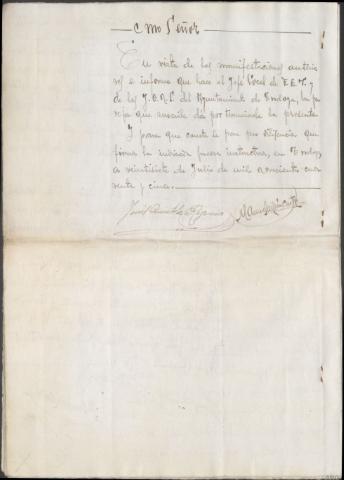 Cmo Señor
En vista de las manifestaciones anterio
res e informe que hace el Jefe Local de F.E.T. y
de las J.O.N.S. del Ayuntamiento de la pa
reja que suscribe da por terminada la presente
Y para que conste se pone por diligencia que
firma la indicada fuerza instructora, en
a veintisiete de Julio de mil novecientos cua
renta y cinco.
José